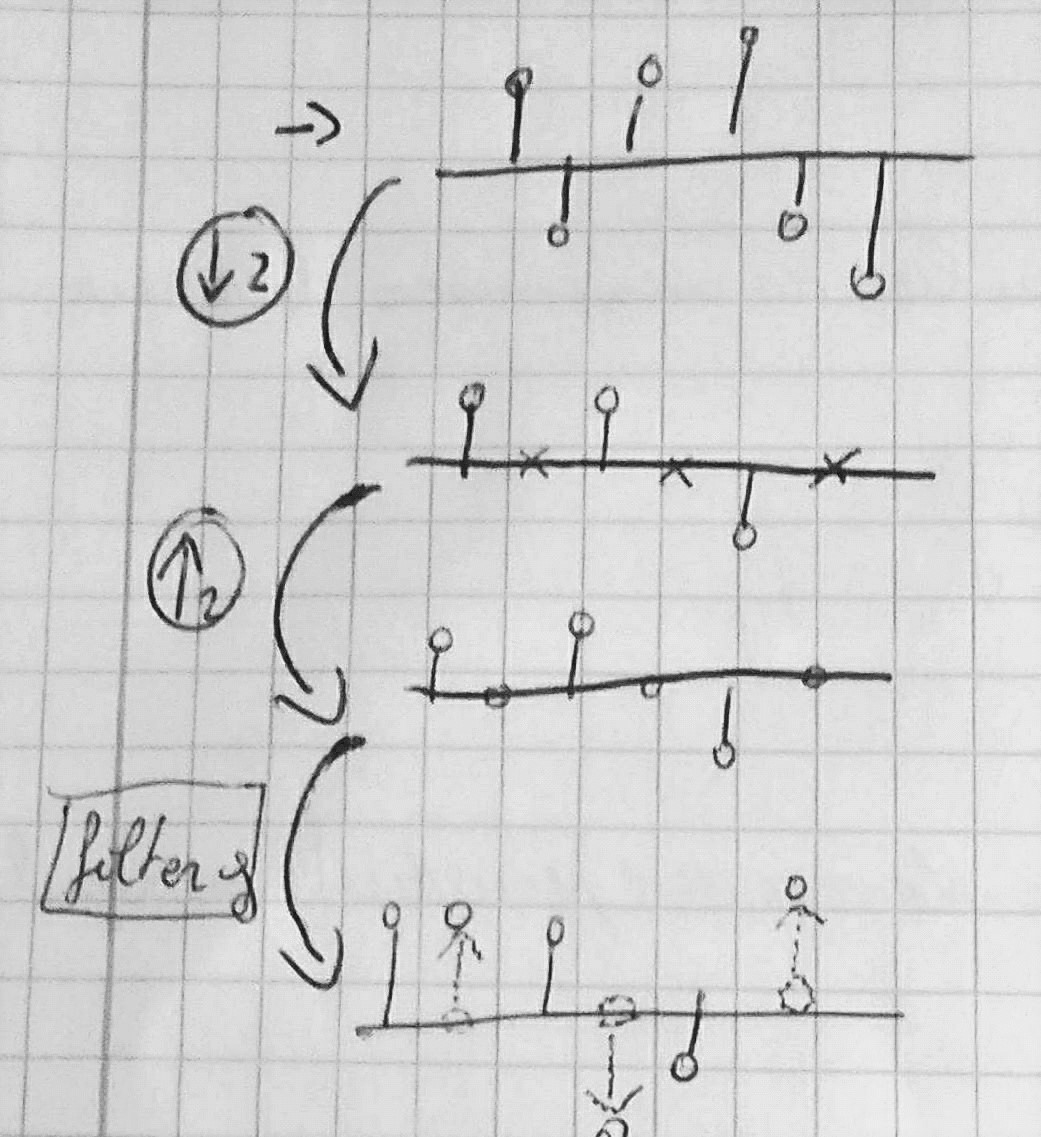 ↓2
↑2
filter g